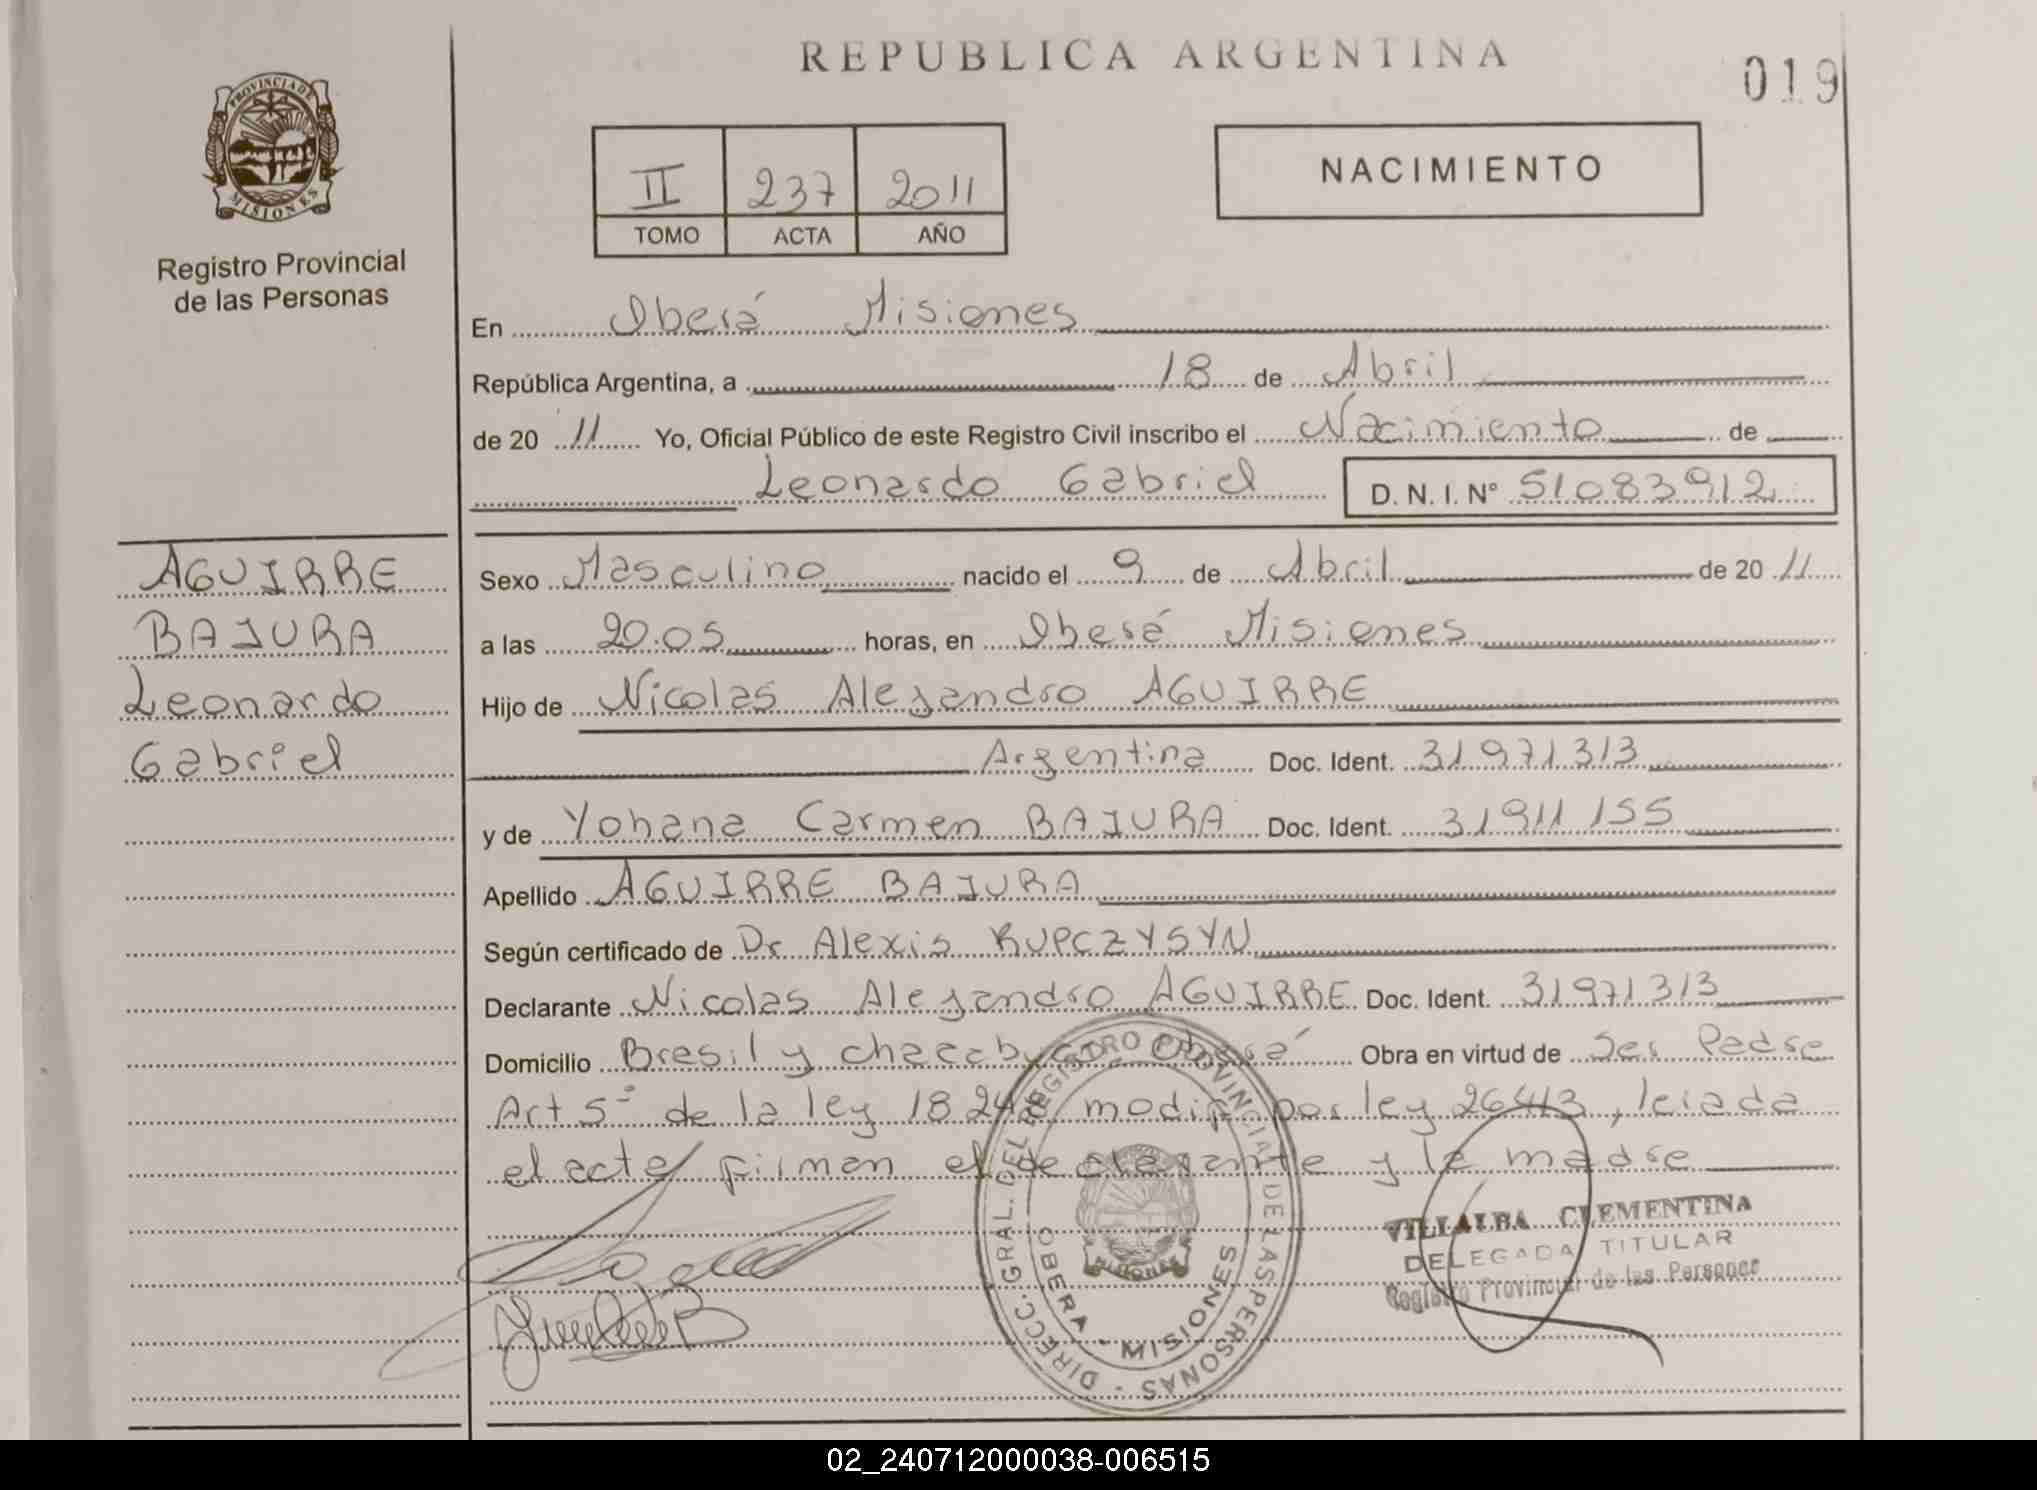 REPUBLICA ARGENTINA
019
PROVINCIA DE
MISIONES
Registro Provincial
de las Personas
II 237 2011
TOMO ACTA AÑO
NACIMIENTO
En Oberá Misiones
República Argentina, a 18 de Abril
de 20 11 Yo, Oficial Público de este Registro Civil inscribo el Nacimiento de
Leonardo Gabriel D. N. I. N° 51083912
AGUIRRE
BAJURA
Leonardo
Gabriel
Sexo Masculino nacido el 9 de Abril de 20 11
a las 20.05 horas, en Oberá Misiones
Hijo de Nicolas Alejandro AGUIRRE
Argentina Doc. Ident. 31971313
y de Yohana Carmen BAJURA Doc. Ident. 31911155
Apellido AGUIRRE BAJURA
Según certificado de Dr Alexis RUPCZYSYN
Declarante Nicolas Alejandro AGUIRRE Doc. Ident. 31971313
Domicilio Brasil y chacabuco Oberá Obra en virtud de Ser Padre
Art 5° de la ley 18248 modif por ley 26413, leida
el acta firman el declarante y la madre
DIRECC. GRAL. DEL REGISTRO PROVINCIAL DE LAS PERSONAS
OBERA - MISIONES
MISIONES
VILLALBA CLEMENTINA
DELEGADA TITULAR
Registro Provincial de las Personas
02_240712000038-006515